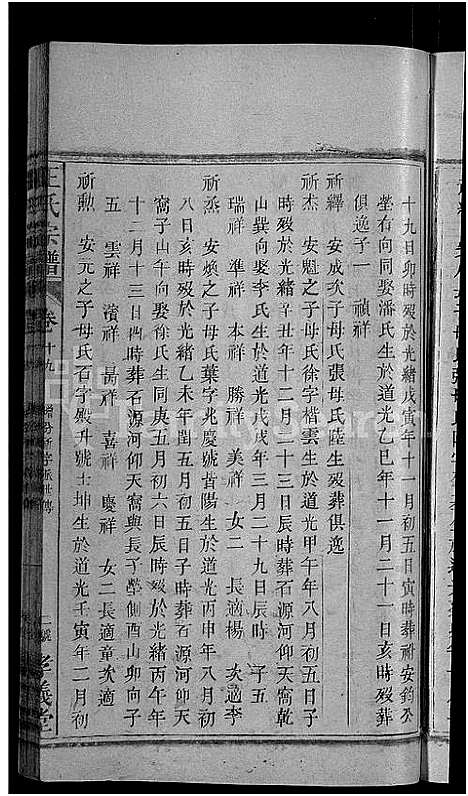 十九日卯時歿於光緒戊寅年十一月初五日寅時葬祔安鈞公
塋右向同娶潘氏生於道光乙巳年十一月二十一日亥時歿葬
俱逸子一　禎祥
祈釋　安成次子母氏張母氏陸生歿葬俱逸
祈杰　安魁之子母氏徐字楷雲生於道光甲午年八月初五日子
時歿於光緒辛丑年十二月二十三日辰時葬石源河仰天窩乾
山巽向娶李氏生於道光年三月二十九日辰時　子五
瑞祥　準祥　本祥　勝祥　美祥　女二　長適楊　次適李
祈烝　安煥之子母氏葉字兆慶號昔陽生於道光丙申年八月初
八日亥時歿於光緒乙未年閏五月初五日子時葬石源河仰天
窩子山午向娶徐氏生同庚五月初六日辰時歿於光緒丙午年
十二月十三日酉時葬石源河仰天窩與長子塋側酉山卯向子
五　雲祥　濱祥　昜祥　喜祥　慶祥　女二長適童次適
祈勲　安元之子母氏石字殿升號士坤生於道光壬寅年二月初
王氏宗譜　卷十九　三槐　孝義堂